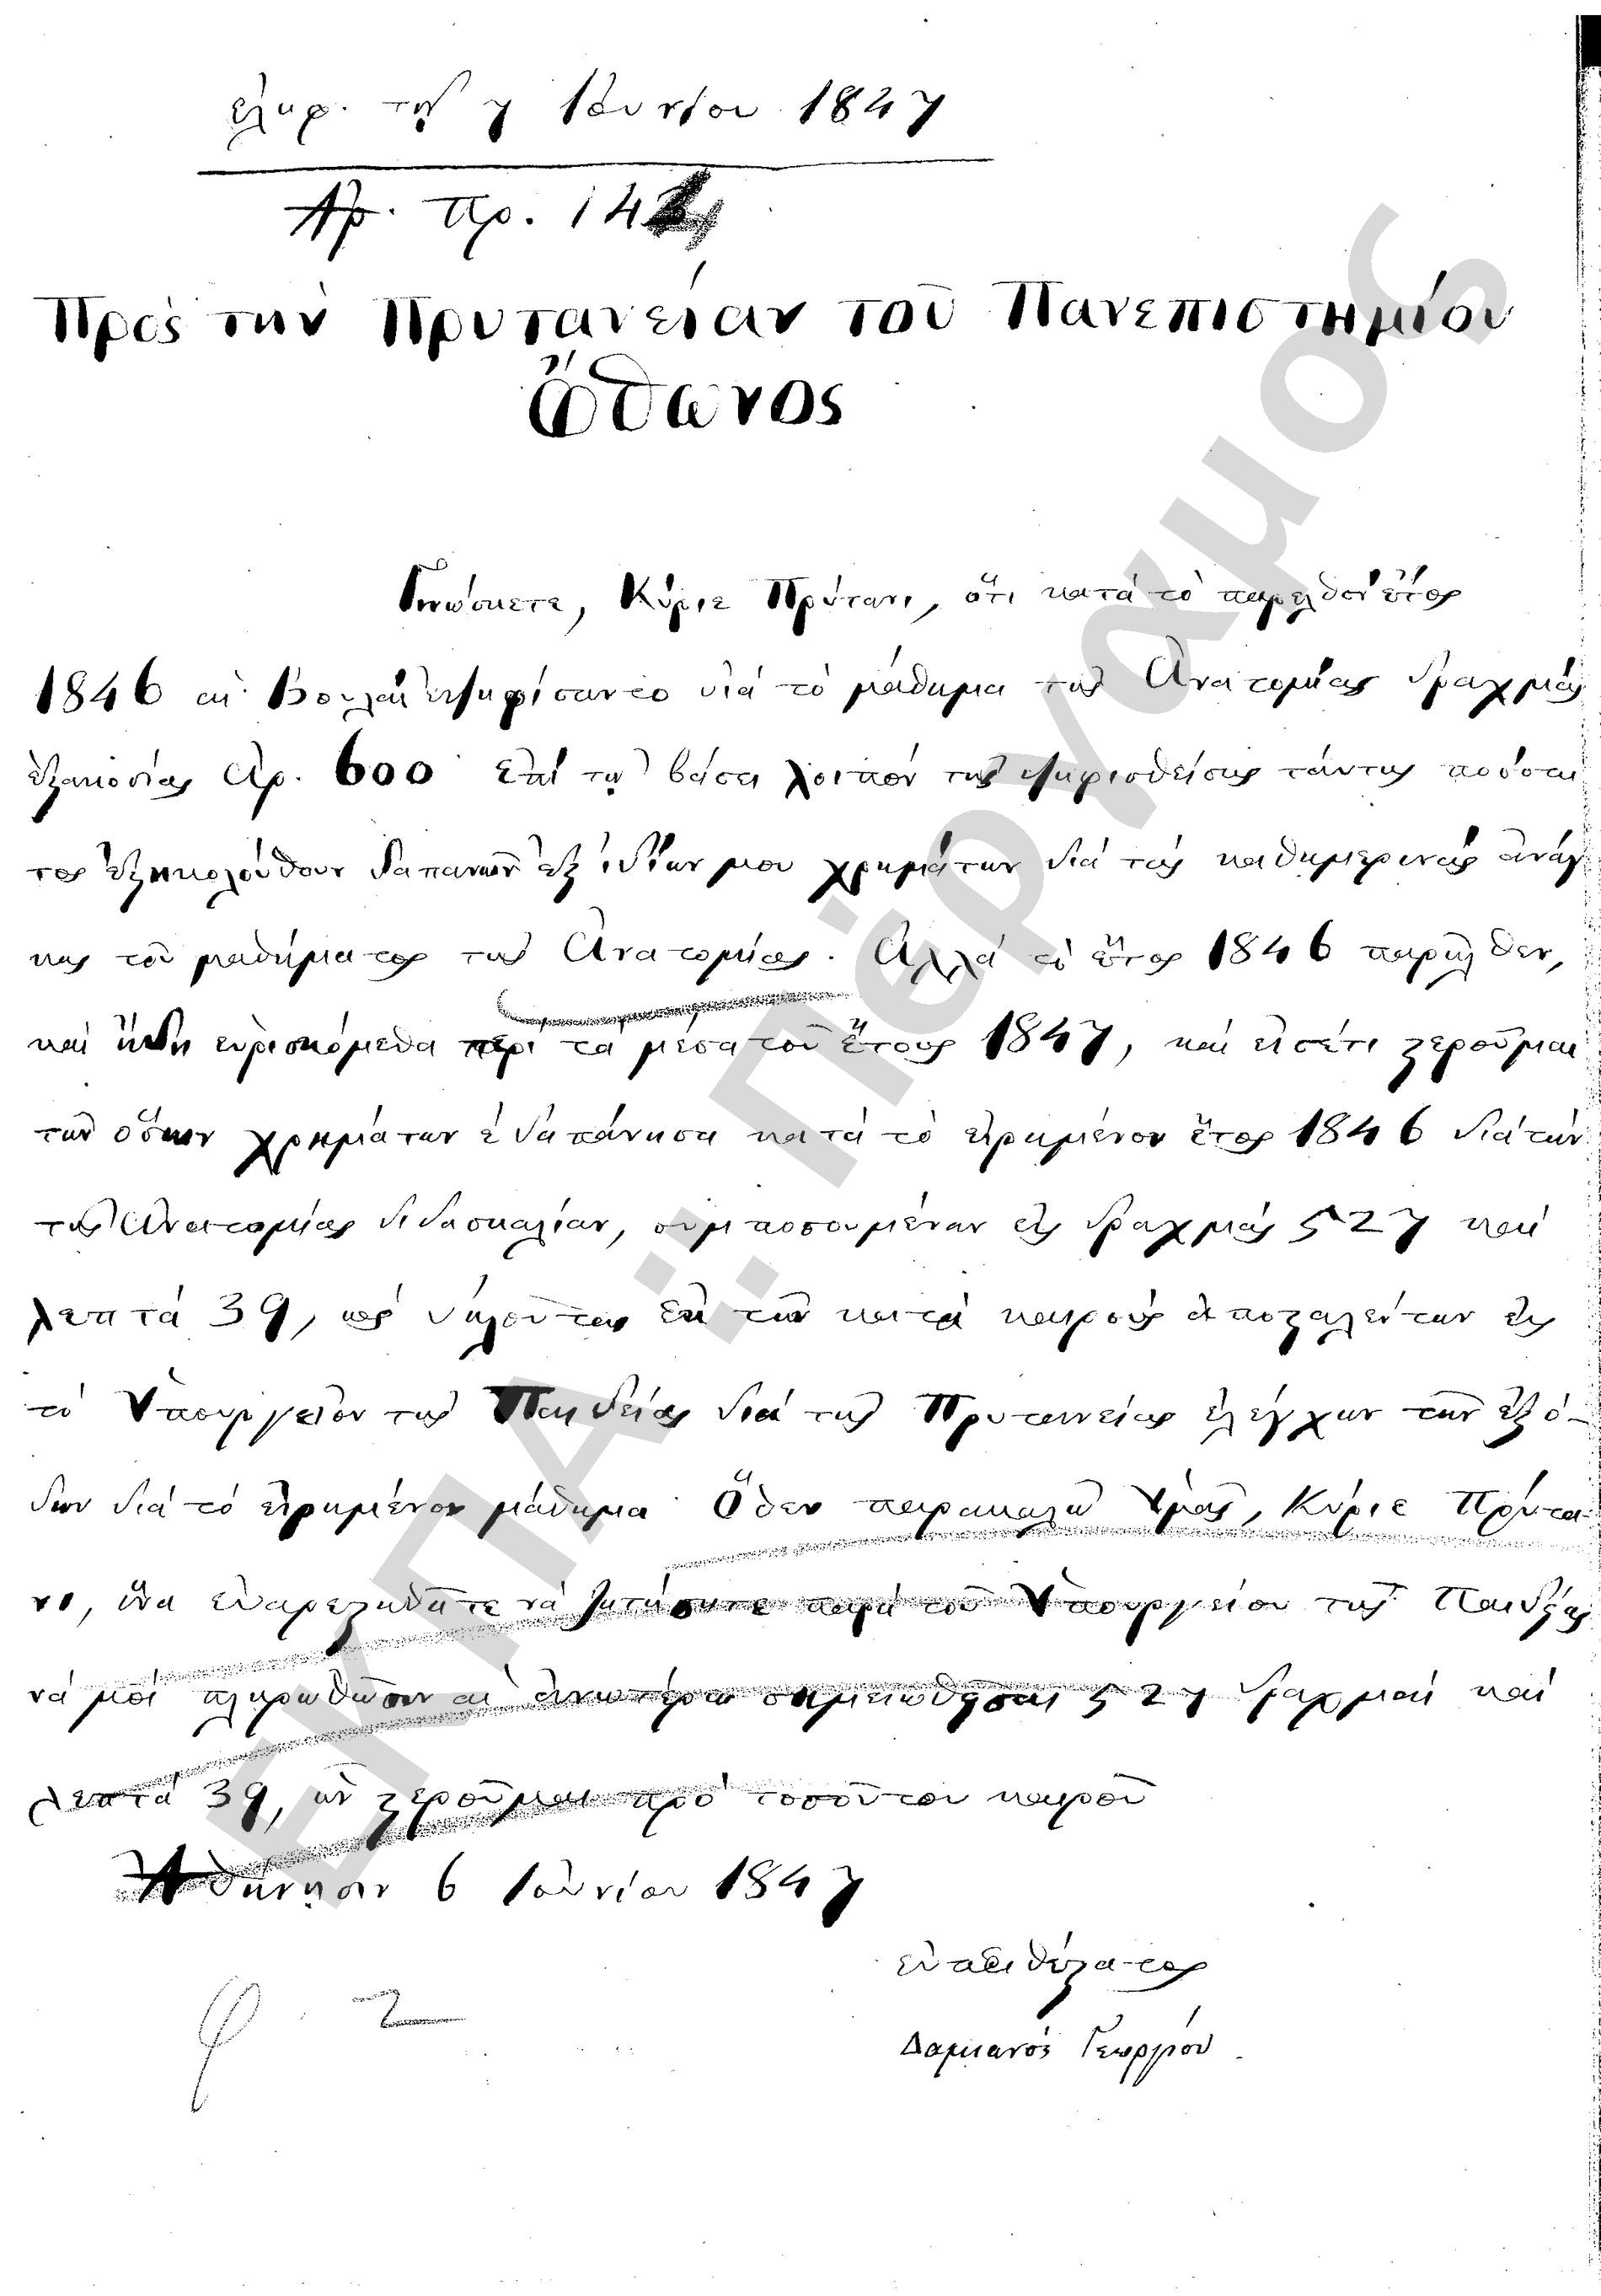 ἐλήφ. τῇ 7 Ἰουνίου 1847
Ἀρ. πρ. 142
Πρὸς τὴν Πρυτανείαν τοῦ Πανεπιστημίου
Ὄθωνος
Γινώσκετε, Κύριε Πρύτανι, ὅτι κατὰ τὸ παρελθὸν ἔτος
1846 αἱ Βουλαὶ ἐψηφίσαντο διὰ τὸ μάθημα τῆς Ἀνατομίας δραχμὰς
ἑξακοσίας Ἀρ. 600 Ἐπὶ τῇ βάσει λοιπὸν τῆς ψηφισθείσης ταύτης ποσότη
τος ἐξηκολούθουν δαπανῶν ἐξ ἰδίων μου χρημάτων διὰ τὰς καθημερινὰς ἀνάγ
κας τοῦ μαθήματος τῆς Ἀνατομίας. Ἀλλὰ τὸ ἔτος 1846 παρῆλθεν,
καὶ ἤδη εὑρισκόμεθα περὶ τὰ μέσα τοῦ ἔτους 1847, καὶ εἰσέτι στεροῦμαι
τῶν ὅσων χρημάτων ἐδαπάνησα κατὰ τὸ εἰρημένον ἔτος 1846 διὰ τὴν
τῆς Ἀνατομίας διδασκαλίαν, συμποσουμένων εἰς δραχμὰς 527 καὶ
λεπτὰ 39, ὡς δηλοῦται ἐκ τῶν κατὰ καιροὺς ἀποσταλέντων εἰς
τὸ Ὑπουργεῖον τῆς Παιδείας διὰ τῆς Πρυτανείας ἐλέγχων τῶν ἐξό-
δων διὰ τὸ εἰρημένον μάθημα Ὅθεν παρακαλῶ Ὑμᾶς, Κύριε Πρύτα
νι, ἵνα εὐαρεστηθῆτε νὰ ζητήσητε παρὰ τοῦ Ὑπουργείου τῆς Παιδείας
νὰ μοὶ πληρωθῶσιν αἱ ἀνωτέρω σημειωθεῖσαι 527 δραχμαὶ καὶ
λεπτὰ 39, ὧν στεροῦμαι πρὸ τοσούτου καιροῦ
Ἀθήνησιν 6 Ἰουνίου 1847
εὐπειθέστατος
Δαμιανὸς Γεωργίου
φ. 2
ΕΚΠΑ:: Πέργαμος